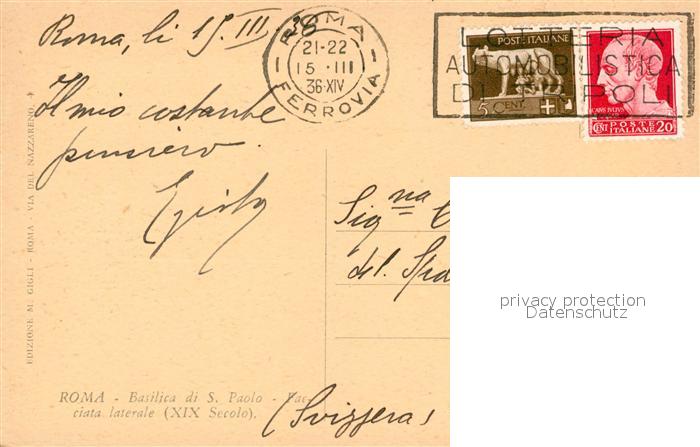 Roma, li 15. III. 36
ROMA
21-22
15 III
36·XIV
FERROVIA
LOTTERIA
AUTOMOBILISTICA
DI POLI
POSTE ITALIANE
5 CENT.
CENT POSTE ITALIANE 20
Il mio costante
pensiero.
Sig.na
del
(Svizzera)
privacy protection
Datenschutz
EDIZIONE M. GIGLI - ROMA - VIA DEL NAZZARENO, 4
ROMA - Basilica di S. Paolo - Fac-
ciata laterale (XIX Secolo).